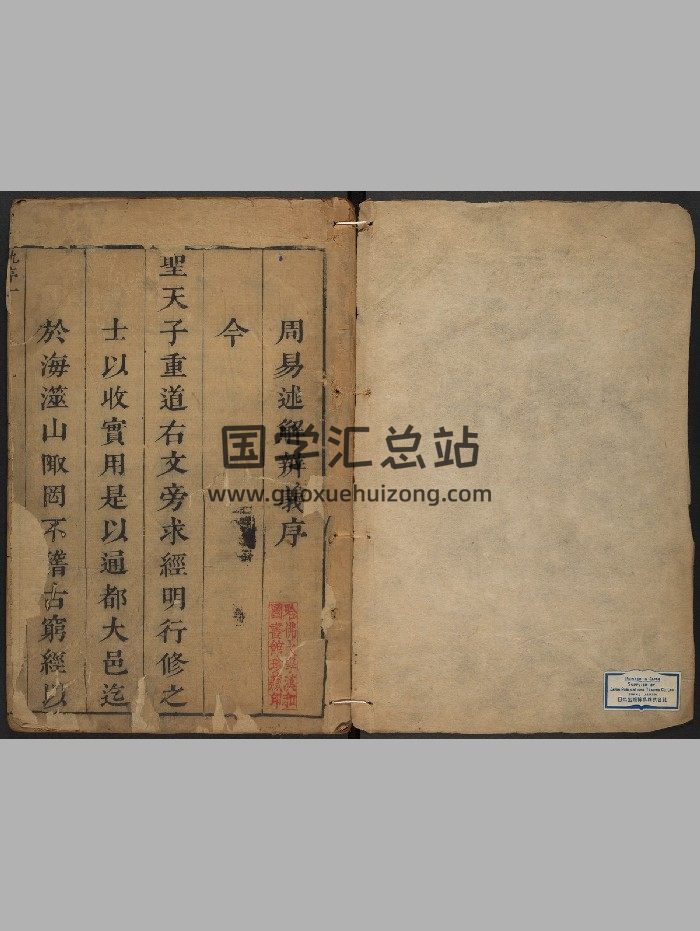 周易述解辨義序
今
聖天子重道右文旁求經明行修之
士以收實用是以通都大邑迄
於海澨山陬罔不稽古窮經以
国学汇总站
www.guoxuehuizong.com